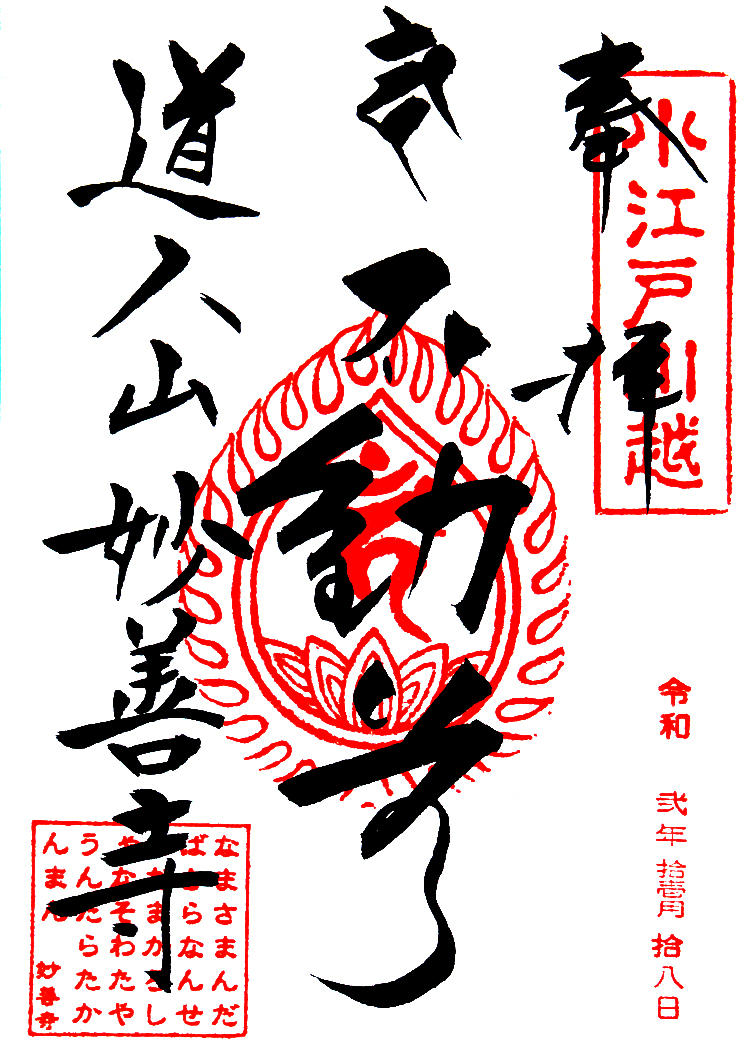 奉拝
小江戸川越
令和 弐年 拾壹月 拾八日
不動尊
道人山 妙善寺
なまさまんだ
ばさらなんせ
んだまかろし
やなそわたや
うんたらたか
んまん 妙善寺